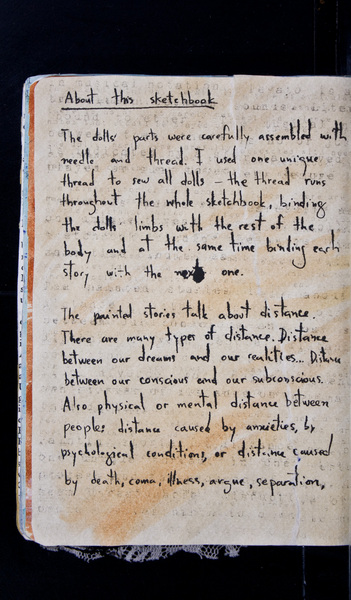 About this sketchbook
The dolls' parts were carefully assembled with
needle and thread. I used one unique
thread to sew all dolls – the thread runs
throughout the whole sketchbook, binding
the dolls' limbs with the rest of the
body and at the same time binding each
story with the next one.
The painted stories talk about distance.
There are many types of distance. Distance
between our dreams and our realities... Distance
between our conscious and our subconscious.
Also physical or mental distance between
people: distance caused by anxieties, by
psychological conditions, or distance caused
by death, coma, illness, argue, separation,